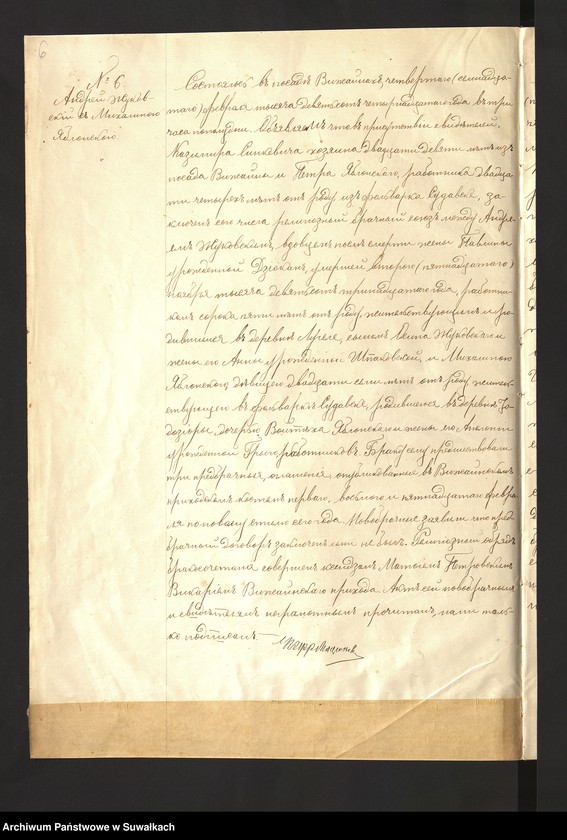 6
№ 6.
Андрей Жуков-
скій и Михалина
Яблонская.
Состоялось въ посадѣ Вижайнахъ, четвертаго (семнадца-
таго) февраля тысяча девятьсотъ четырнадцатаго года въ три
часа пополудни. Объявляемъ что въ присутствіи свидѣтелей,
Казимира Синкевича хозяина двадцати девяти лѣтъ изъ
посада Вижайны и Петра Яблонскаго, работника двадца-
ти четырехъ лѣтъ отъ роду изъ фольварка Судавск, за-
ключенъ сего числа религіозный брачный союзъ между Андре-
емъ Жуковскимъ, вдовцемъ послѣ смерти жены Павлины
урожденной умершей второго (пятнадцатаго)
ноября тысяча девятьсотъ тринадцатаго года, работни-
комъ сорока пяти лѣтъ отъ роду, жительствующимъ и ро-
дившимся въ деревнѣ сыномъ Жуковскаго и
жены его Анны урожденной и Михалиною
Яблонскою, дѣвицею двадцати семи лѣтъ отъ роду жительс-
твующею въ фольваркѣ Судавск, родившеюся въ деревнѣ За-
дочерью Войтѣха Яблонскаго и жены его Антонины
урожденной работниковъ. Браку сему предшествовали
три предбрачныя оглашенія, опубликованныя въ Вижайнскомъ
приходскомъ костелѣ перваго, восьмого и пятнадцатаго февра-
ля по новому стилю сего года. Новобрачные заявили что пред-
брачный договоръ заключенъ ими не былъ. Религіозный обрядъ
бракосочетанія совершенъ ксендзомъ Петровскимъ
Викаріемъ Вижайнскаго прихода. Актъ сей новобрачнымъ
и свидѣтелямъ неграмотнымъ прочитанъ, нами толь-
ко подписанъ.
Archiwum Państwowe w Suwałkach